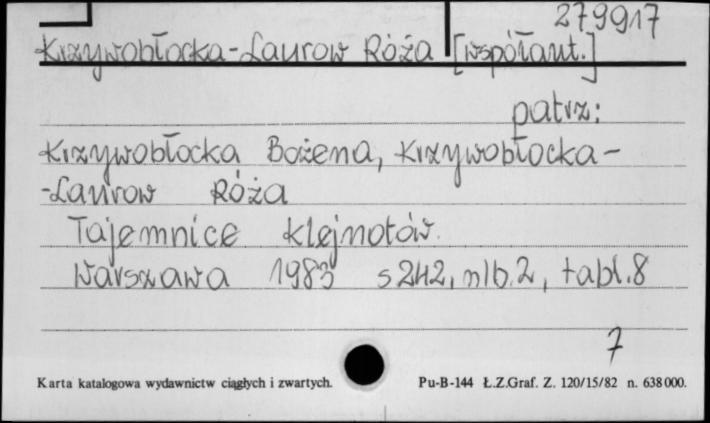 279917
Krzywobłocka-Laurow Róża [współaut.]
patrz:
Krzywobłocka Bożena, Krzywobłocka-
-Laurow Róża
Tajemnice klejnotów.
Warszawa 1983 s 242, nlb. 2, tabl. 8
7
Karta katalogowa wydawnictw ciągłych i zwartych. Pu-B-144 Ł.Z.Graf. Z. 120/15/82 n. 638000.